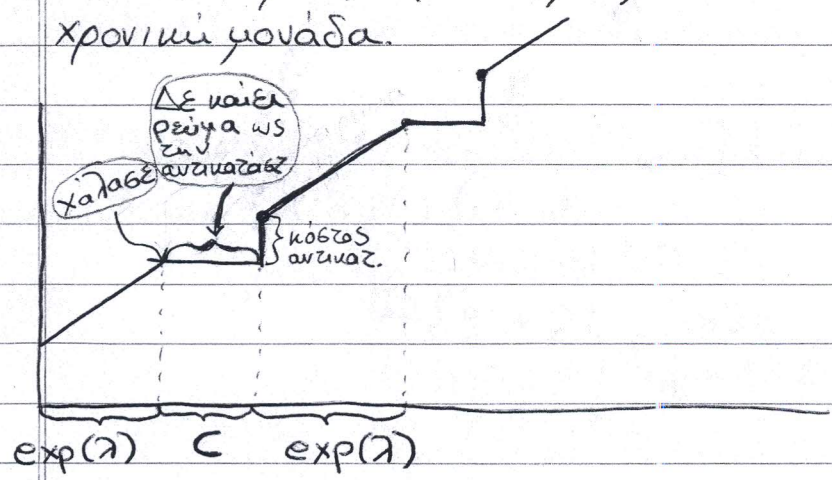 χρονική μονάδα.
Δε καίει
ρεύμα ως
την
αντικατάστ
χάλασε
κόστος
αντικατ.
exp(λ) C exp(λ)